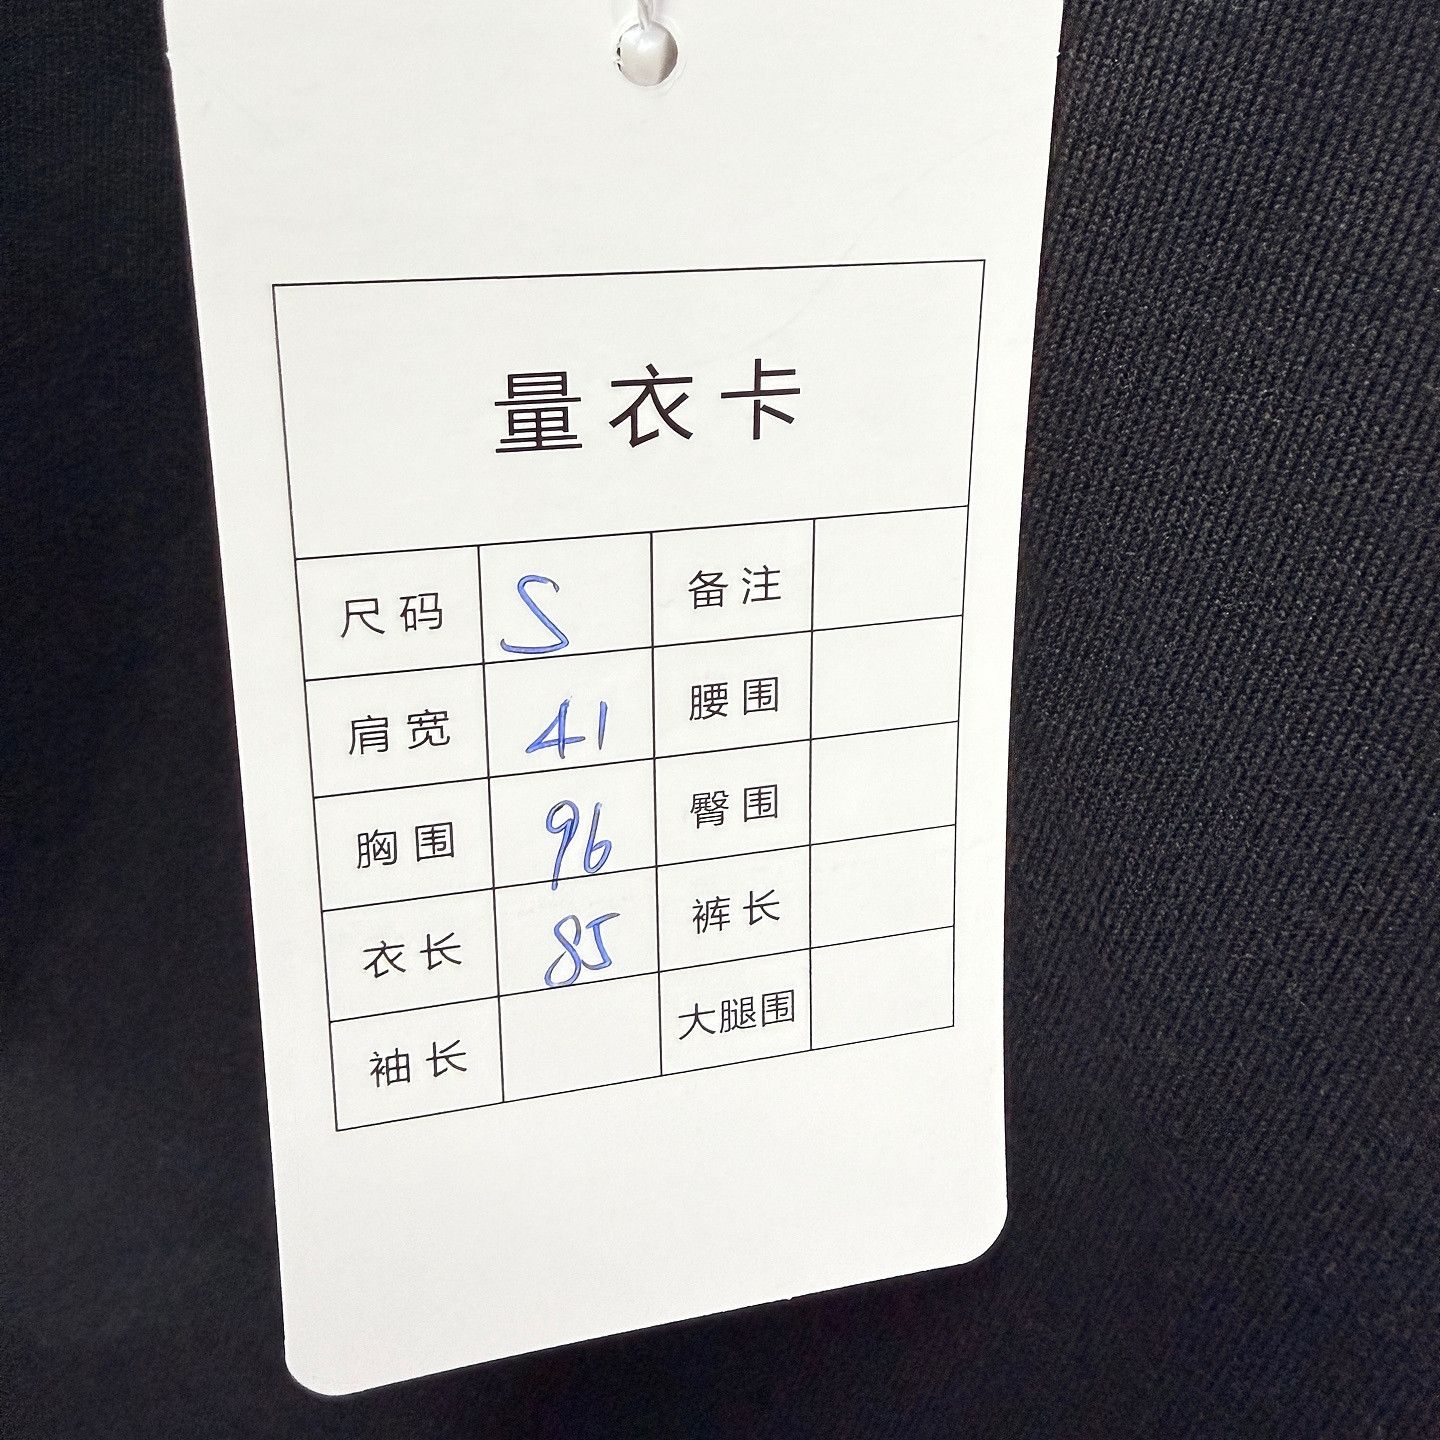 量衣卡
尺码 S 备注
肩宽 41 腰围
胸围 96 臀围
衣长 85 裤长
袖长 大腿围